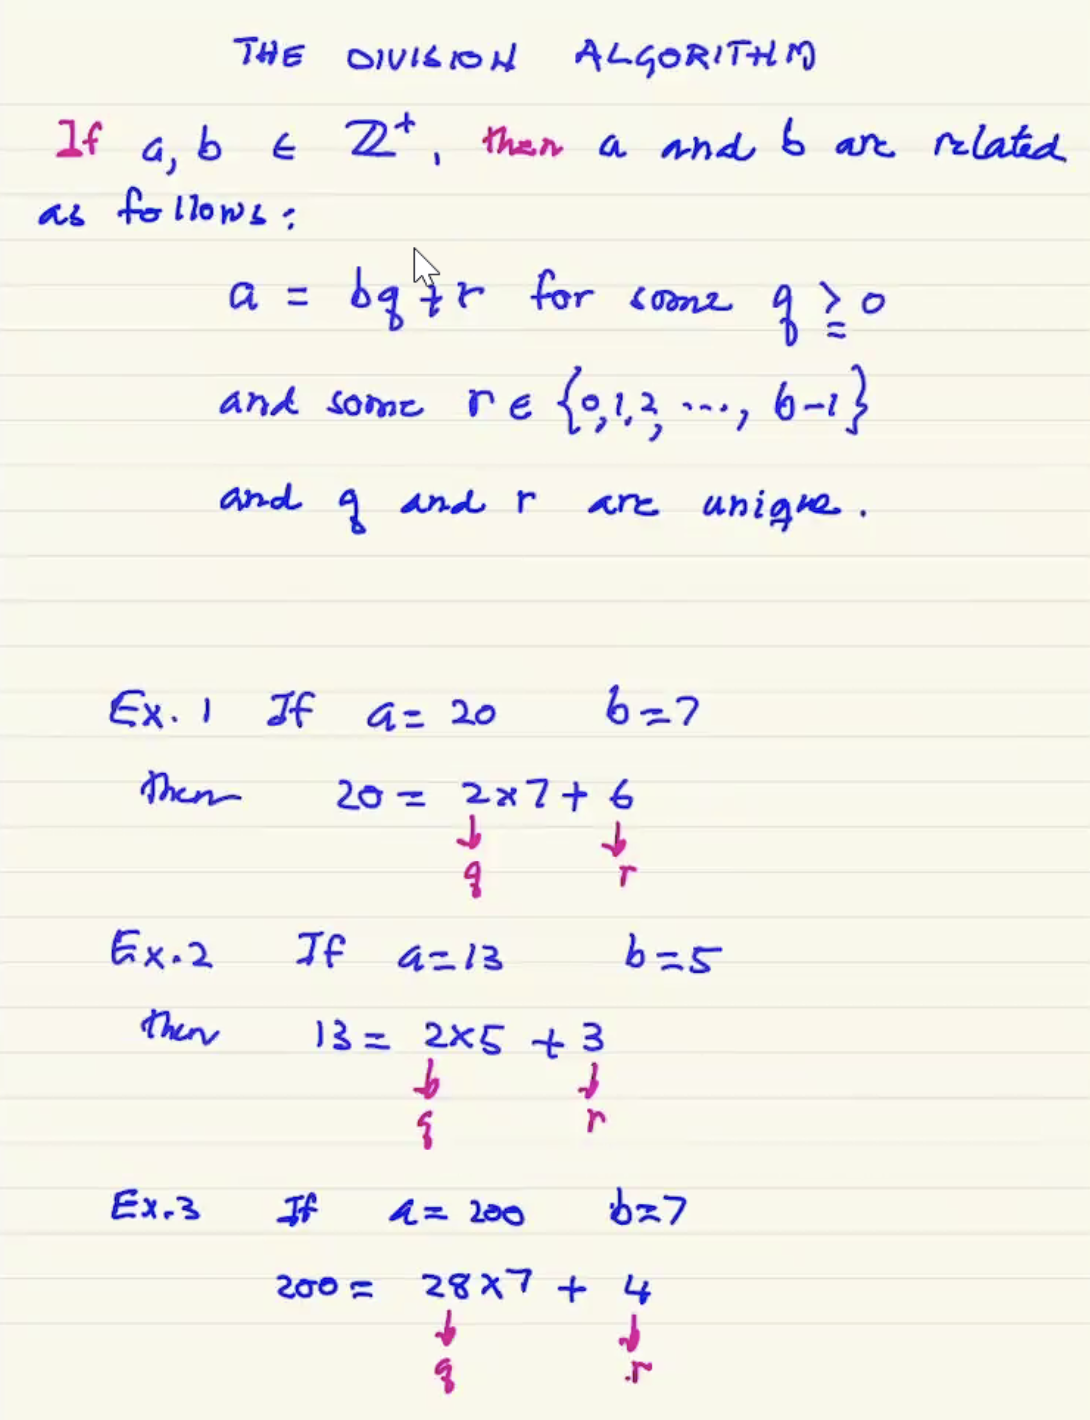 THE DIVISION ALGORITHM
If a, b ∈ ℤ⁺, then a and b are related
as follows:
a = bq + r for some q ≥ 0
and some r ∈ {0, 1, 2, ..., b-1}
and q and r are unique.
Ex. 1 If a = 20 b = 7
then 20 = 2 × 7 + 6
↓ ↓
q r
Ex. 2 If a = 13 b = 5
then 13 = 2 × 5 + 3
↓ ↓
q r
Ex. 3 If a = 200 b = 7
200 = 28 × 7 + 4
↓ ↓
q r